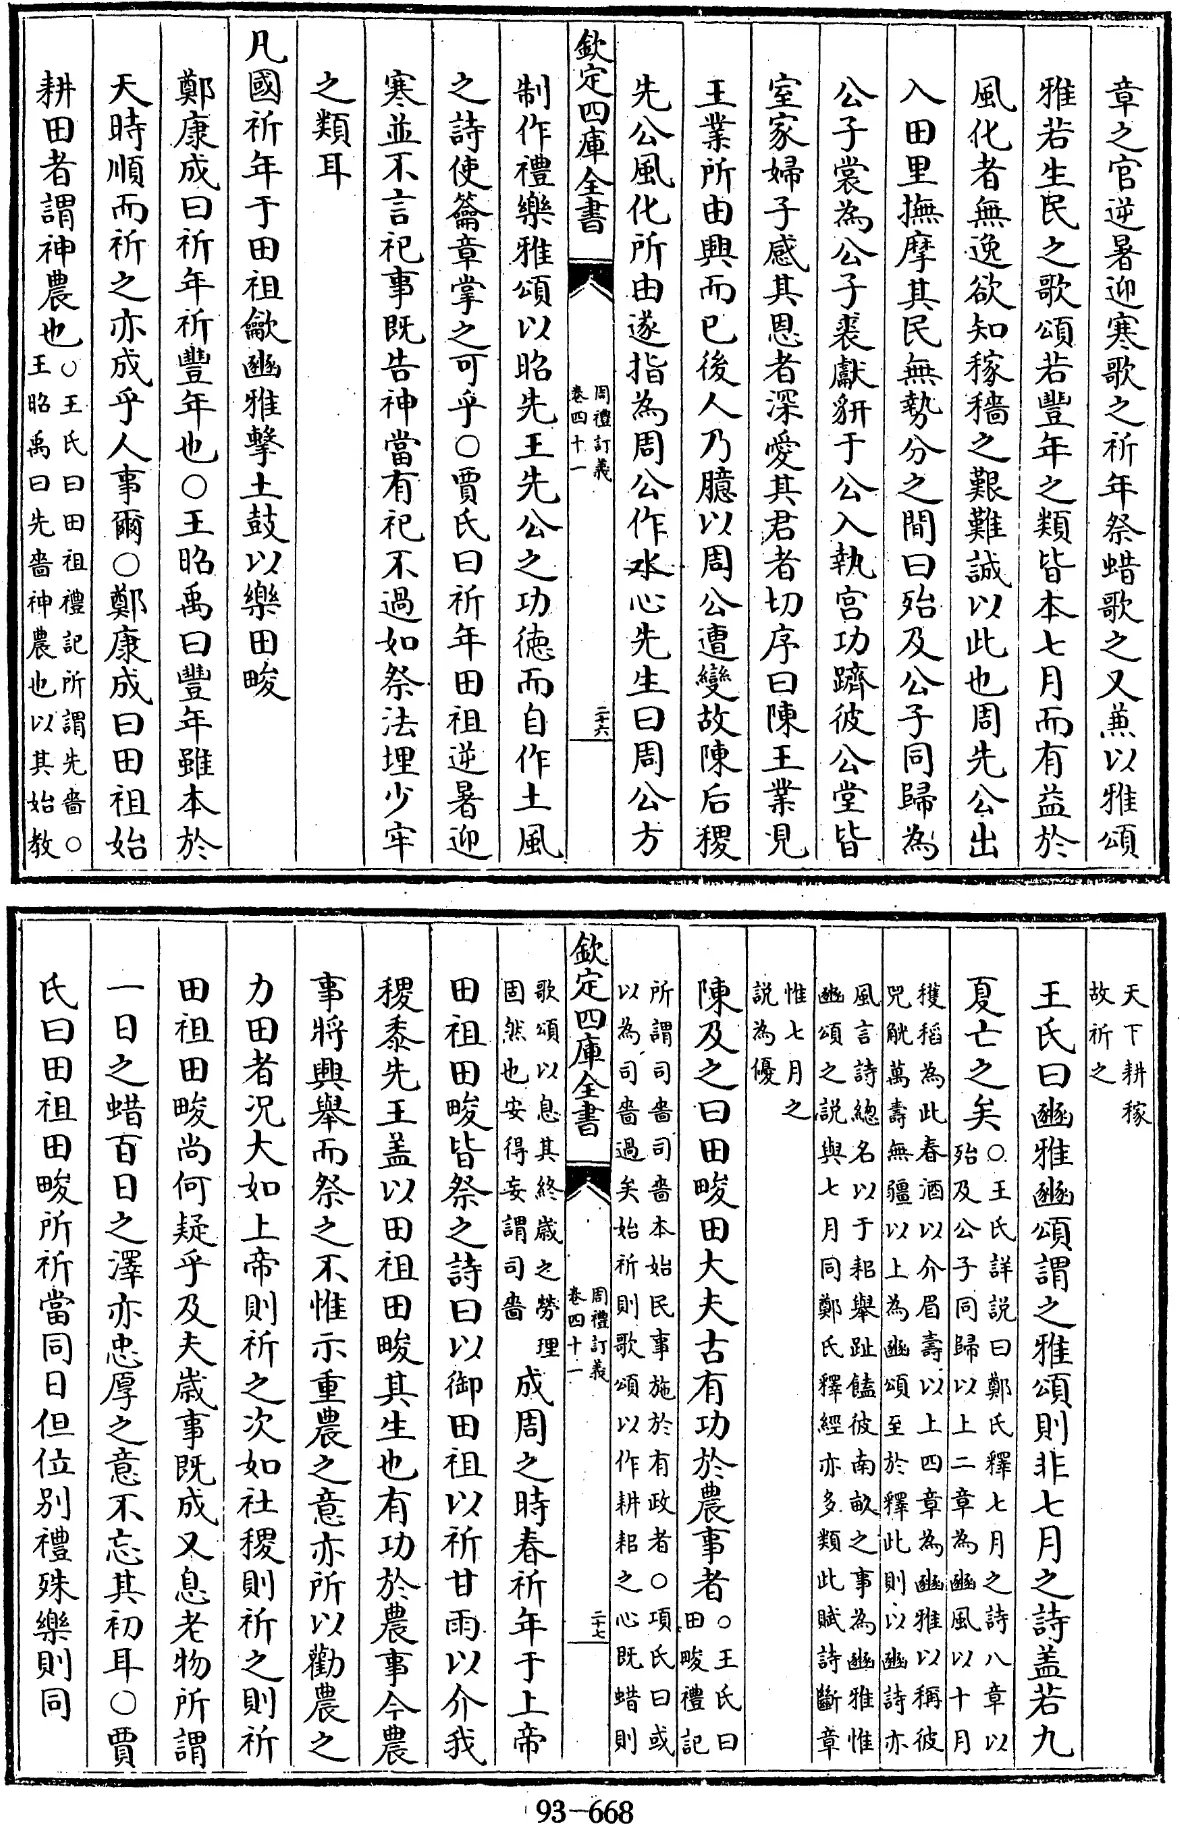 章之官逆暑迎寒歌之祈年祭蜡歌之又兼以雅頌
雅若生民之歌頌若豐年之類皆本七月而有益於
風化者無逸欲知稼穡之艱難誠以此也周先公出
入田里撫摩其民無勢分之間曰殆及公子同歸為
公子裳為公子裘獻豣于公入執宮功躋彼公堂皆
室家婦子感其恩者深愛其君者切序曰陳王業見
王業所由興而已後人乃臆以周公遭變故陳后稷
先公風化所由遂指為周公作水心先生曰周公方
欽定四庫全書
周禮訂義
卷四十一
二十六
制作禮樂雅頌以昭先王先公之功德而自作土風
之詩使籥章掌之可乎○賈氏曰祈年田祖逆暑迎
寒並不言祀事既告神當有祀不過如祭法埋少牢
之類耳
凡國祈年于田祖龡豳雅擊土鼓以樂田畯
鄭康成曰祈年祈豐年也○王昭禹曰豐年雖本於
天時順而祈之亦成乎人事爾○鄭康成曰田祖始
耕田者謂神農也○王氏曰田祖禮記所謂先嗇○
王昭禹曰先嗇神農也以其始教
天下耕稼
故祈之
王氏曰豳雅豳頌謂之雅頌則非七月之詩盖若九
夏亡之矣○王氏詳説曰鄭氏釋七月之詩八章以
殆及公子同歸以上二章為豳風以十月
穫稻為此春酒以介眉壽以上四章為豳雅以稱彼
兕觥萬壽無疆以上為豳頌至於釋此則以豳詩亦
風言詩總名以于耜舉趾饁彼南畝之事為豳雅惟
豳頌之説與七月同鄭氏釋經亦多類此賦詩斷章
惟七月之
説為優
陳及之曰田畯田大夫古有功於農事者○王氏曰
田畯禮記
所謂司嗇司嗇本始民事施於有政者○項氏曰或
以為司嗇過矣始祈則歌頌以作耕耜之心既蜡則
欽定四庫全書
周禮訂義
卷四十一
二十七
歌頌以息其終歲之勞理
固然也安得妄謂司嗇
成周之時春祈年于上帝
田祖田畯皆祭之詩曰以御田祖以祈甘雨以介我
稷黍先王盖以田祖田畯其生也有功於農事今農
事將興舉而祭之不惟示重農之意亦所以勸農之
力田者况大如上帝則祈之次如社稷則祈之則祈
田祖田畯尚何疑乎及夫歲事既成又息老物所謂
一日之蜡百日之澤亦忠厚之意不忘其初耳○賈
氏曰田祖田畯所祈當同日但位别禮殊樂則同
93-668